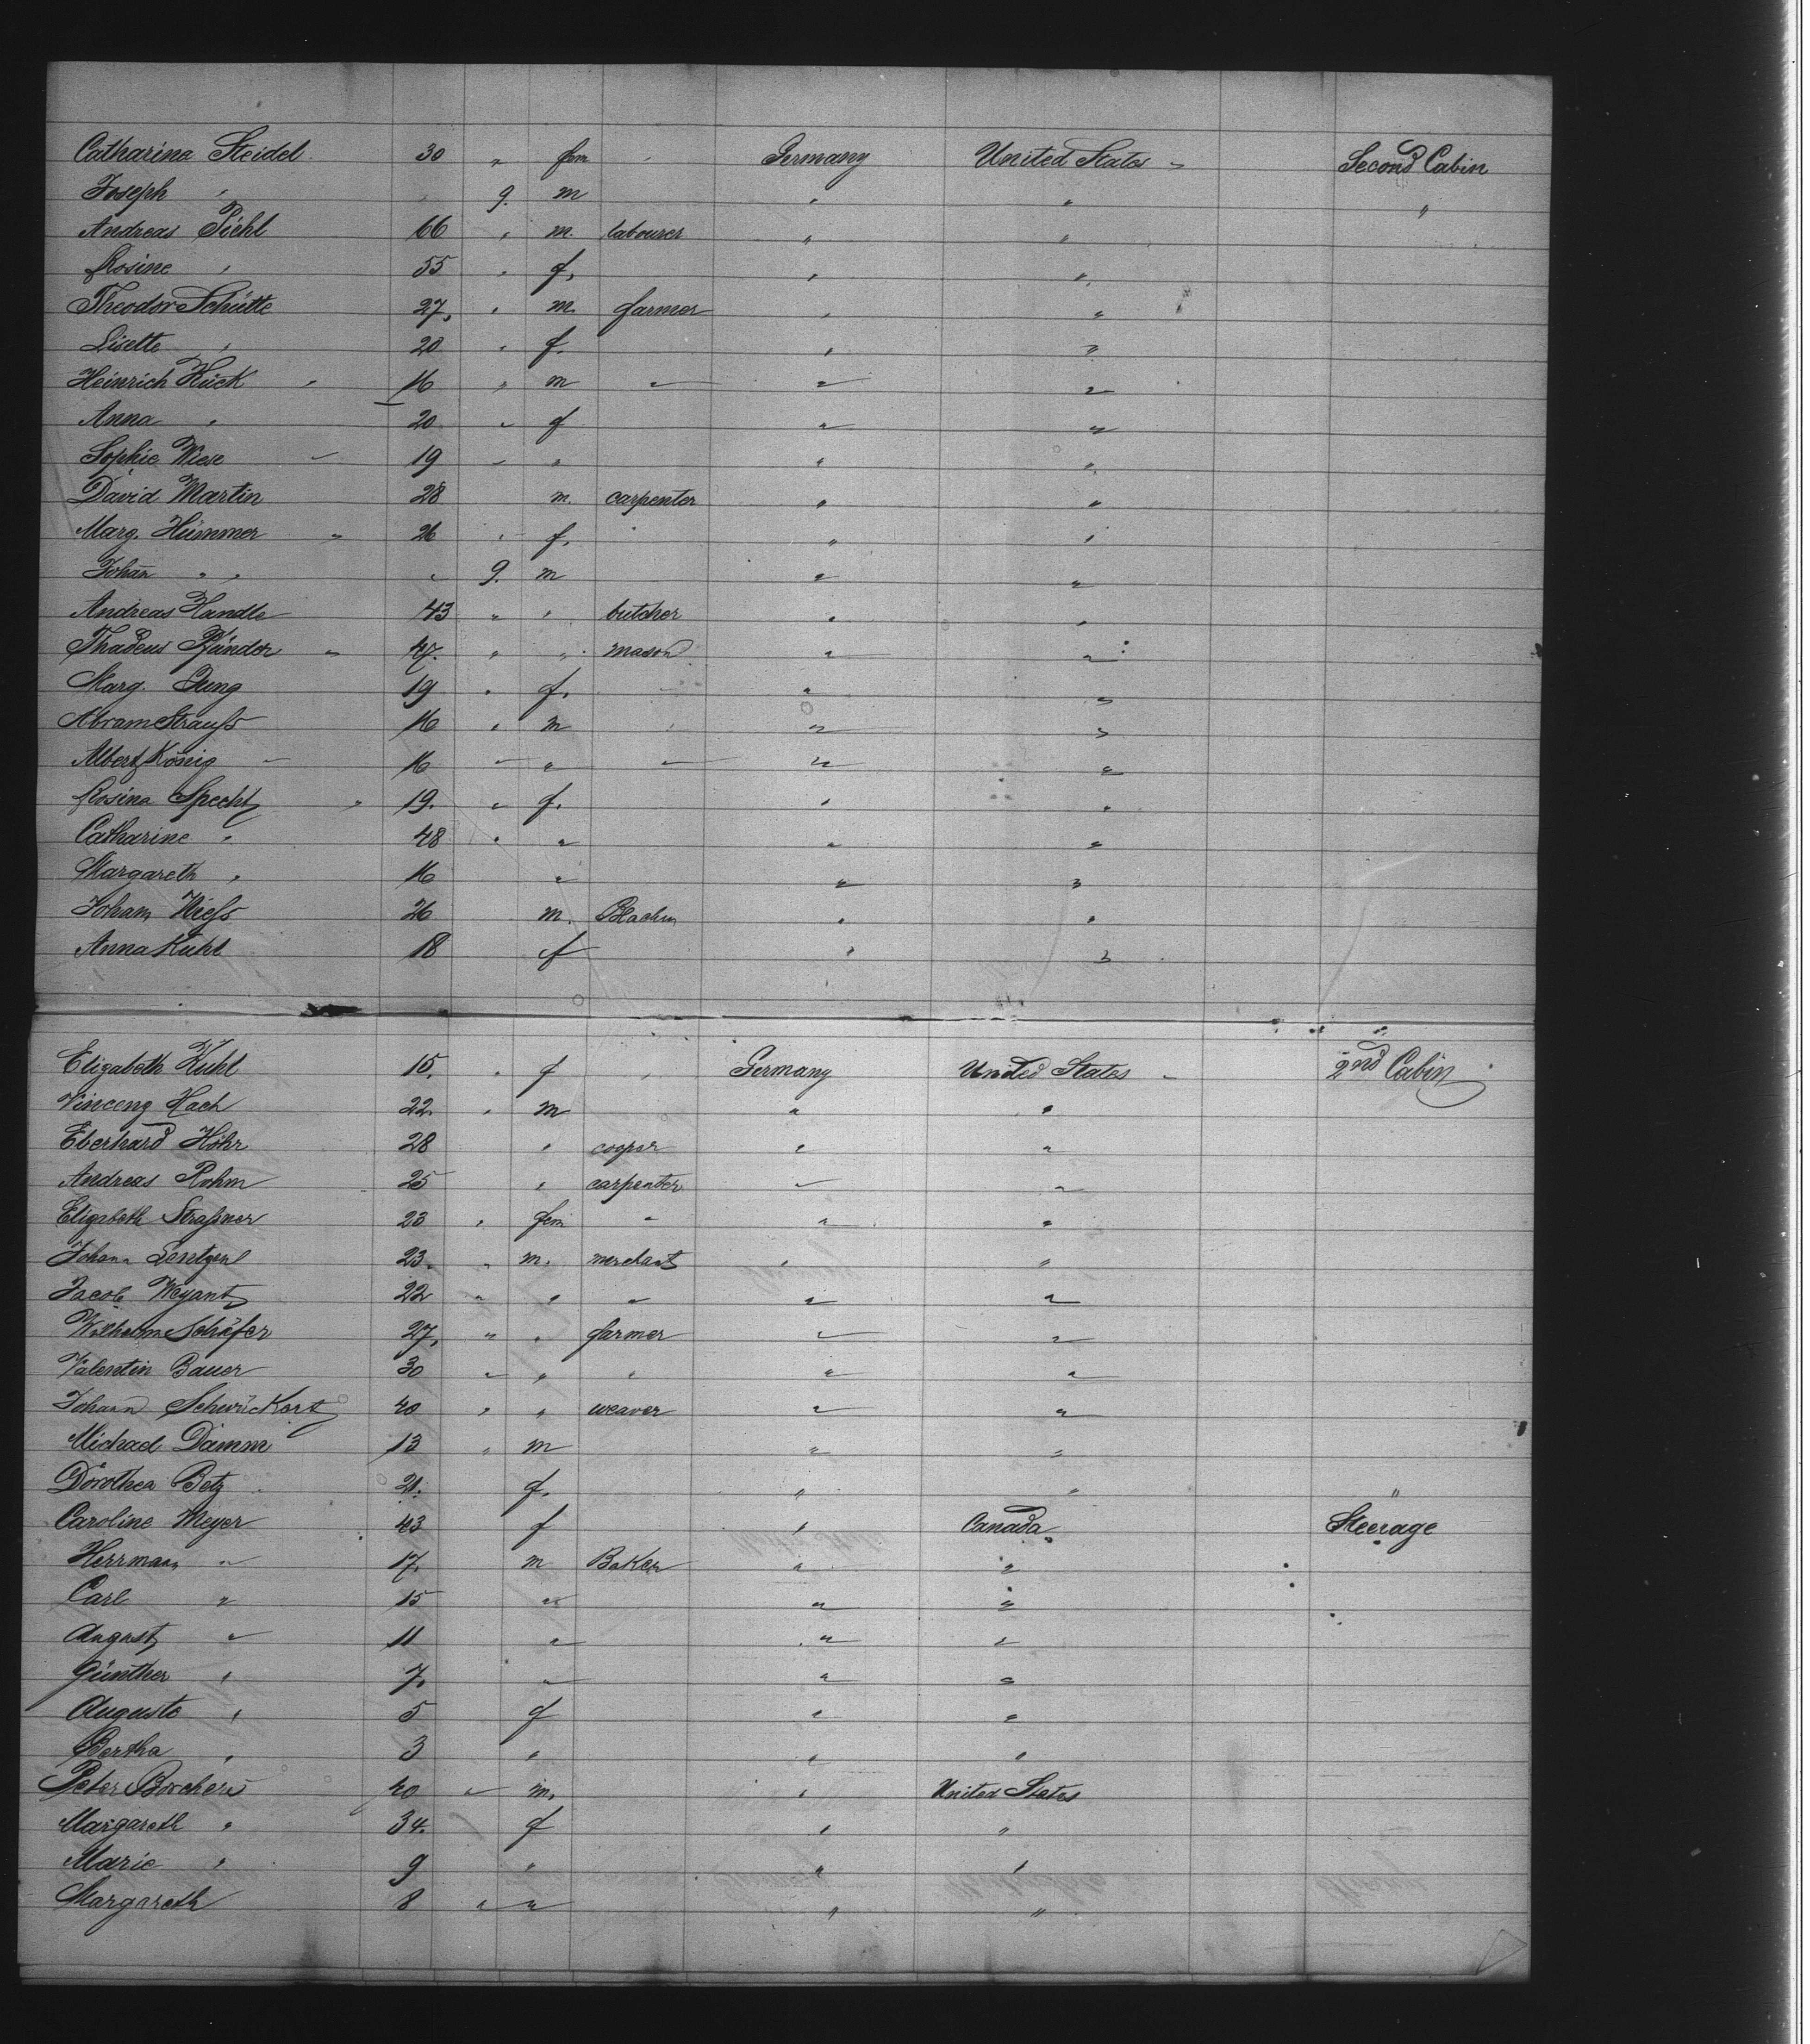 Catharina Steidel 30 " fem " Germany United States " Second Cabin
Joseph " " 9. m " " "
Andreas Pichl 66 " m. labourer " "
Rosine " 55 " f. " "
Theodor Schütte 27, " m. farmer " "
Lisette " 20 " f. " "
Heinrich Kück " 16 " m " " "
Anna " 20 " f " "
Sophie Wiese " 19 " " " "
David Martin 28 m. carpenter " "
Marg. Hümmer " 26 " f. " "
Johan " " " 9. m " "
Andreas Handle 43 " " butcher " "
Thadeus Pfänder " 47. " " mason " "
Marg. Jung 19 " f. " " "
Abram Strauß 16 " m " " "
Albert König " 16 " " " " "
Rosina Specht " 19. " f. " "
Catharine " 48 " " " "
Margareth " 16 " " "
Joham 26 m. " "
Anna Kuhl 18 f " "
Elizabeth Kuhl 15. " f " Germany United States " 2nd Cabin
Vincenz Hach 22. " m " "
Eberhard Höhr 28 " cooper " "
Andreas Rohm 25 " carpenter " "
Elisabeth Straßner 23 " fem " " "
Johann 23. " m. merchant " "
Jacob Weyant 22 " " " " "
Wilhelm Schäfer 27, " " farmer " "
Valentin Bauer 30 " " " " "
Johann Schwickart 40 " " weaver " "
Michael Damm 13 " m " "
Dorothea Betz 21. f. " " "
Caroline Meyer 43 f " Canada Steerage
Herrmann " 17. m Baker " "
Carl " 15 " " "
August " 11 " " "
Günther " 7. " " "
Auguste " 5 f " "
Bertha " 3 " " "
Peter Borchers 40 " m. " United States
Margareth " 34. f " "
Marie " 9 " " "
Margareth 8 " " " "